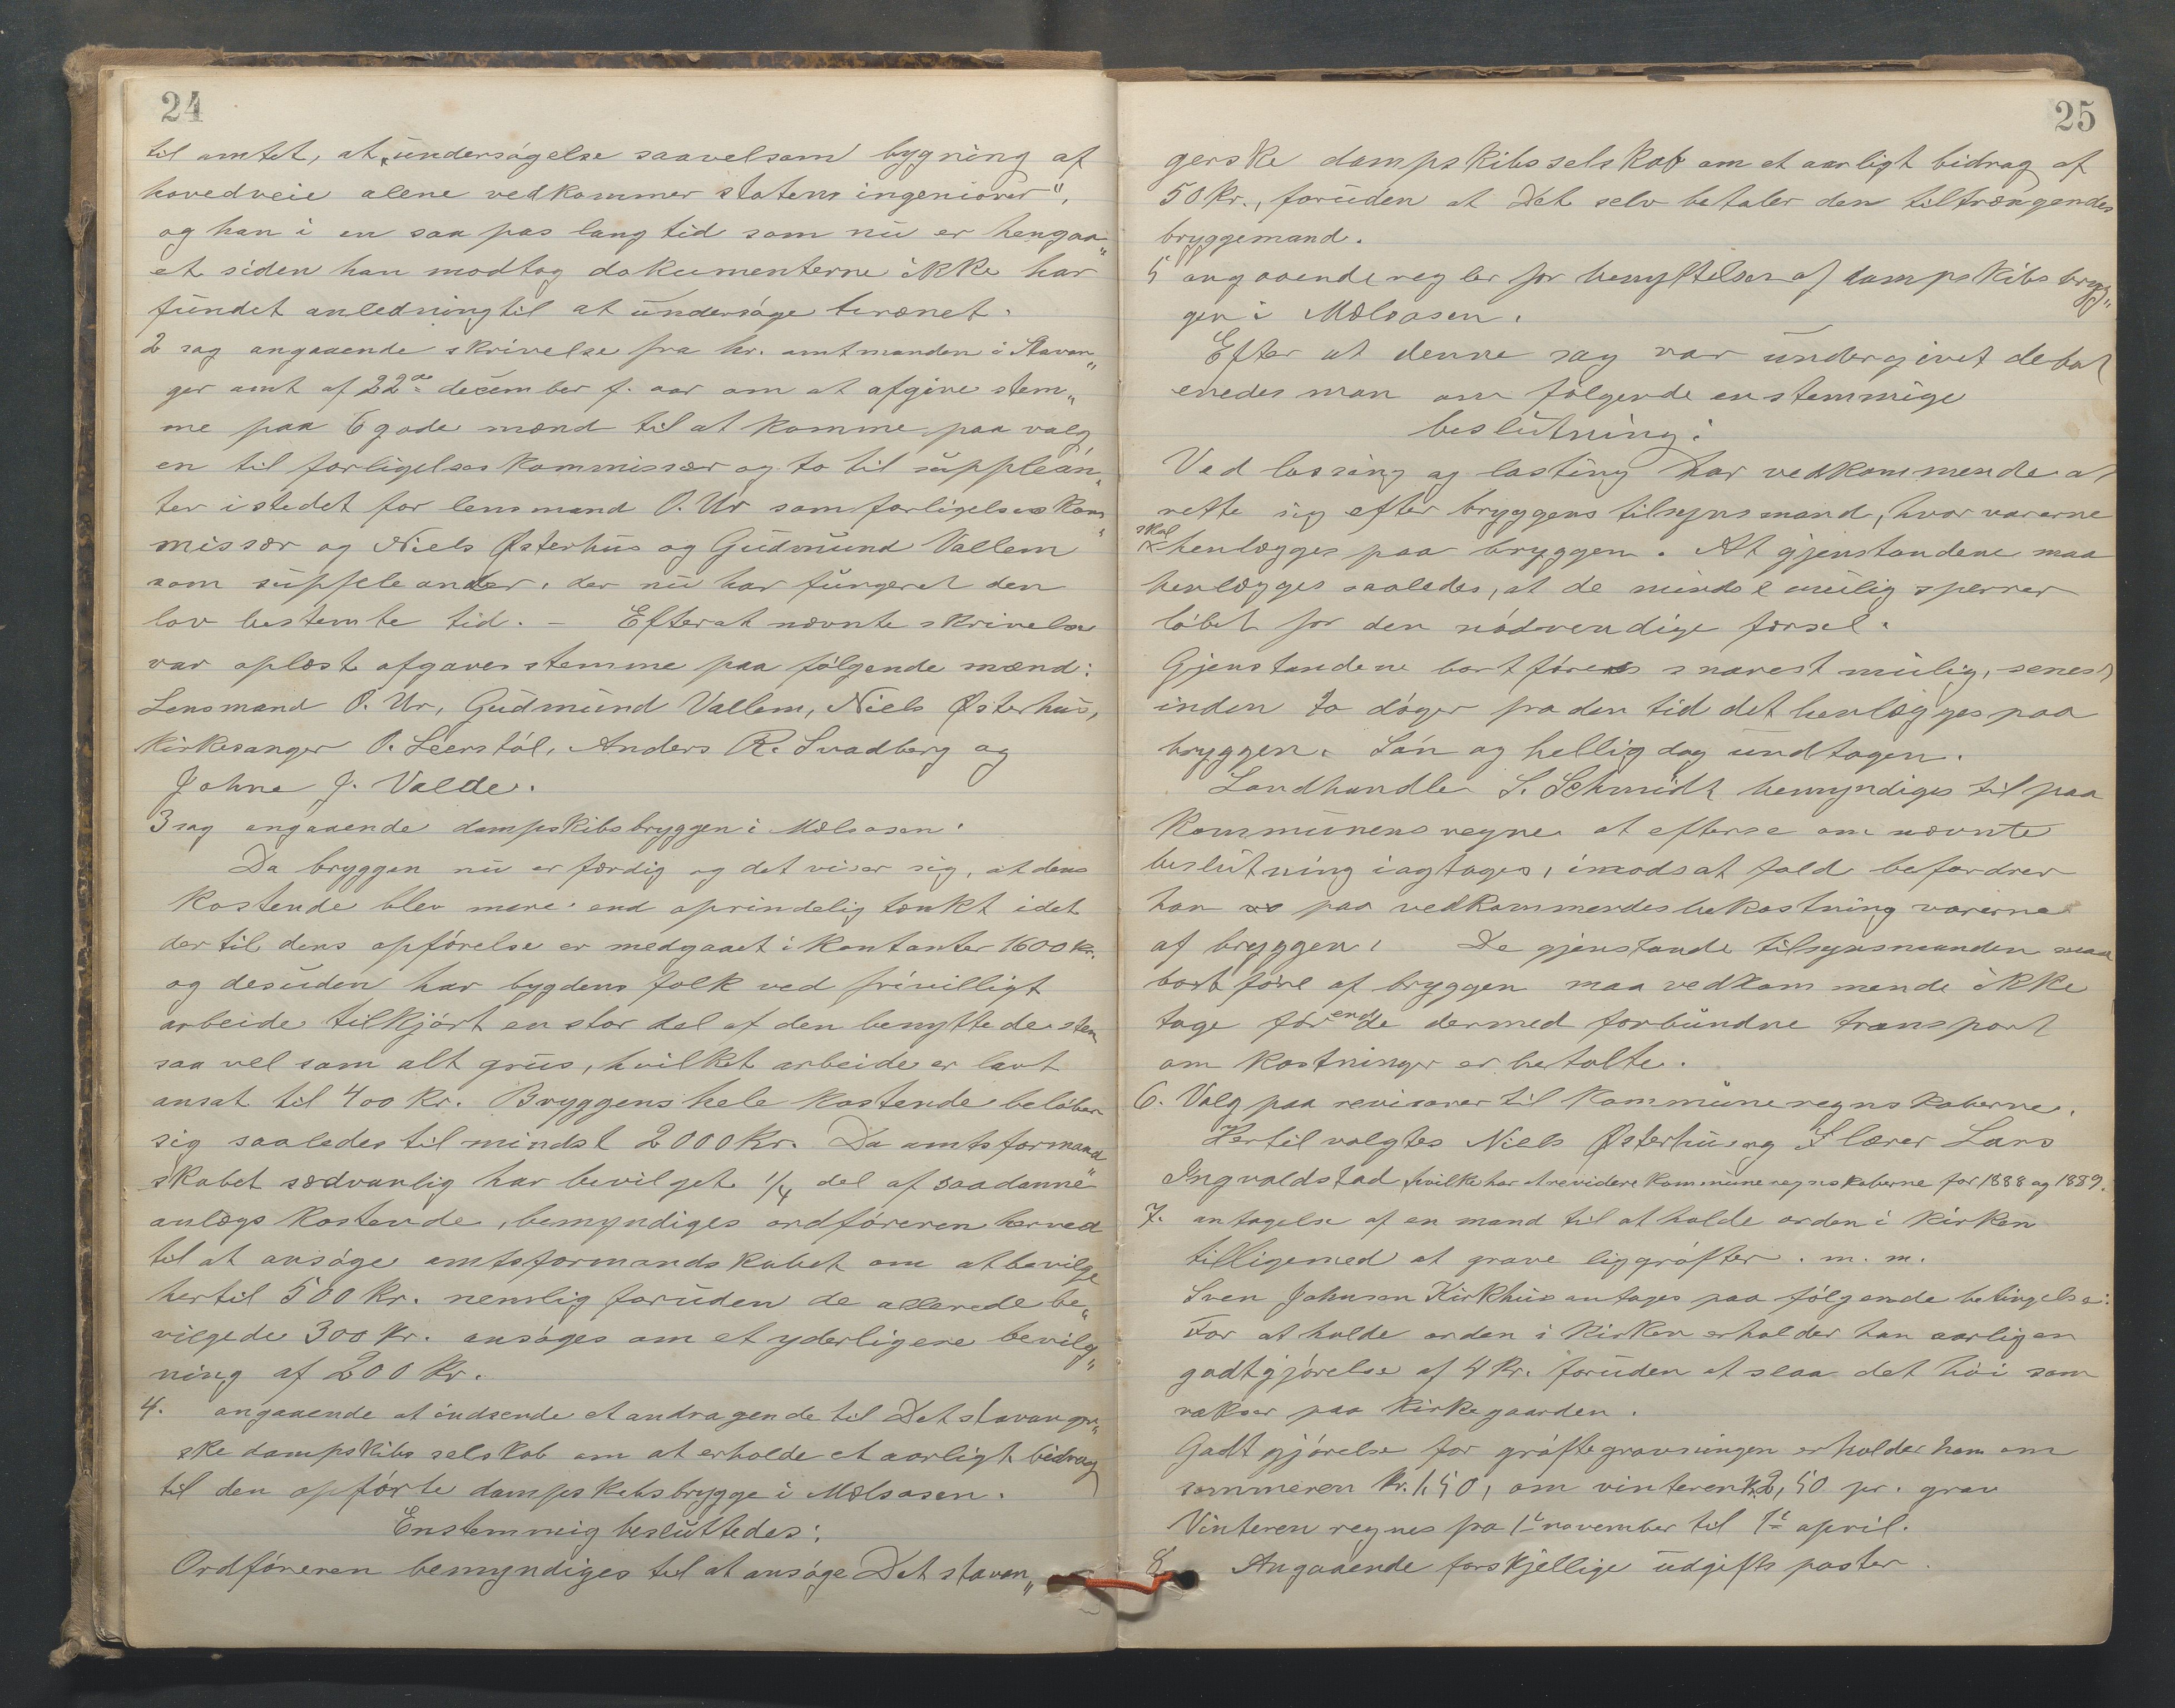 24
til amtet, at „undersøgelse saavelsom bygning af
hovedveie alene vedkommer statens ingeniører",
og han i en saa pas lang tid som nu er hengaa„
et siden han modtog dokumenterne ikke har
fundet anledning til at undersøge terænet.
2 sag angaaende skrivelse fra hr. amtmanden i Stavan„
ger amt af 22de december f. aar om at afgive stem„
me paa 6 gode mænd til at komme paa valg
en til forligelseskommissær og to til supplean„
ter istedet for lensmand O. Ur som forligelseskom„
missær og Niels Østerhus og Gudmund Vallem
som suppleanter, der nu har fungeret den
lov bestemte tid. – Efterat nævnte skrivelse
var oplæst afgaves stemme paa følgende mænd:
Lensmand O. Ur, Gudmund Vallem, Niels Østerhus,
Kirkesanger O. Leerstøl, Anders R. Svadberg og
Johne J. Valde.
3 sag angaaende dampskibsbryggen i Mælsosen.
Da bryggen nu er færdig og det viser sig, at dens
kostende blev mere end oprindelig tænkt idet
der til dens opførelse er medgaaet i kontanter 1600 kr.
og desuden har bygdens folk ved frivilligt
arbeide tilkjørt en stor del af den benyttede sten
saa vel som alt grus, hvilket arbeide er lavt
ansat til 400 kr. Bryggens hele kostende beløber
sig saaledes til mindst 2000 Kr. Da amtsformand„
skabet sædvanlig har bevilget 1/4 del af saadanne
anlægs kostende, bemyndiges ordføreren herved
til at ansøge amtsformandskabet om at bevilge
hertil 500 kr. nemlig foruden de allerede be„
vilgede 300 kr. ansøges om et yderligere bevilg„
ning af 200 kr.
4. angaaende at indsende et andragende til Det stavanger„
ske dampskibs selskab om at erholde et aarligt bidrag
til den opførte dampskibsbrygge i Mælsosen.
Enstemmig besluttedes:
Ordføreren bemyndiges til at ansøge Det stavan„
25
gerske dampskibsselskab om et aarligt bidrag af
50 kr., foruden at Det selv betaler den tiltrængendes
bryggemand.
5 angaaende regler for benyttelsen af dampskibsbryg„
gen i Mælsosen.
Efter at denne sag var undergivet debat
enedes man om følgende enstemmige
beslutning:
Ved lossing og lasting har vedkommende at
rette sig efter bryggens tilsynsmand, hvor varerne
skal henlægges paa bryggen. At gjenstandene maa
henlægges saaledes, at de mindst mulig sperrer
løbet for den nødvendige færsel.
Gjenstandene bortføres snarest mulig, senest
inden to døger fra den tid det henlægges paa
bryggen. Søn og hellig dag undtagen.
Landhandler S. Schmidt bemyndiges til paa
Kommunens vegne at efterse om nævnte
beslutning iagtages, i modsat fald befordrer
han paa vedkommendes bekostning varerne
af bryggen. De gjenstande tilsynsmanden maa
bort føre af bryggen maa vedkommende ikke
tage før end de dermed forbundne transport
om kostninger er betalte.
6. Valg paa revisorer til Kommuneregnskaberne.
Hertil valgtes Niels Østerhus og Lærer Lars
Ingvaldstad, hvilke har at revidere Kommuneregnskaberne for 1888 og 1889.
7. antagelse af en mand til at holde orden i kirken
tilligemed at grave liggrøfter . m. m.
Sven Johnsen Kirkhus antages paa følgende betingelse:
For at holde orden i kirken erholder han aarlig en
godtgjørelse af 4 kr. foruden at slaa det høi som
vakser paa kirkegaarden.
Godtgjørelse for grøftegravningen erholder ham om
sommeren kr. 1,50, om vinteren kr. 2,50 pr. grav
Vinteren regnes fra 1ste november til 1ste april.
8. Angaaende forskjellige udgifts poster.